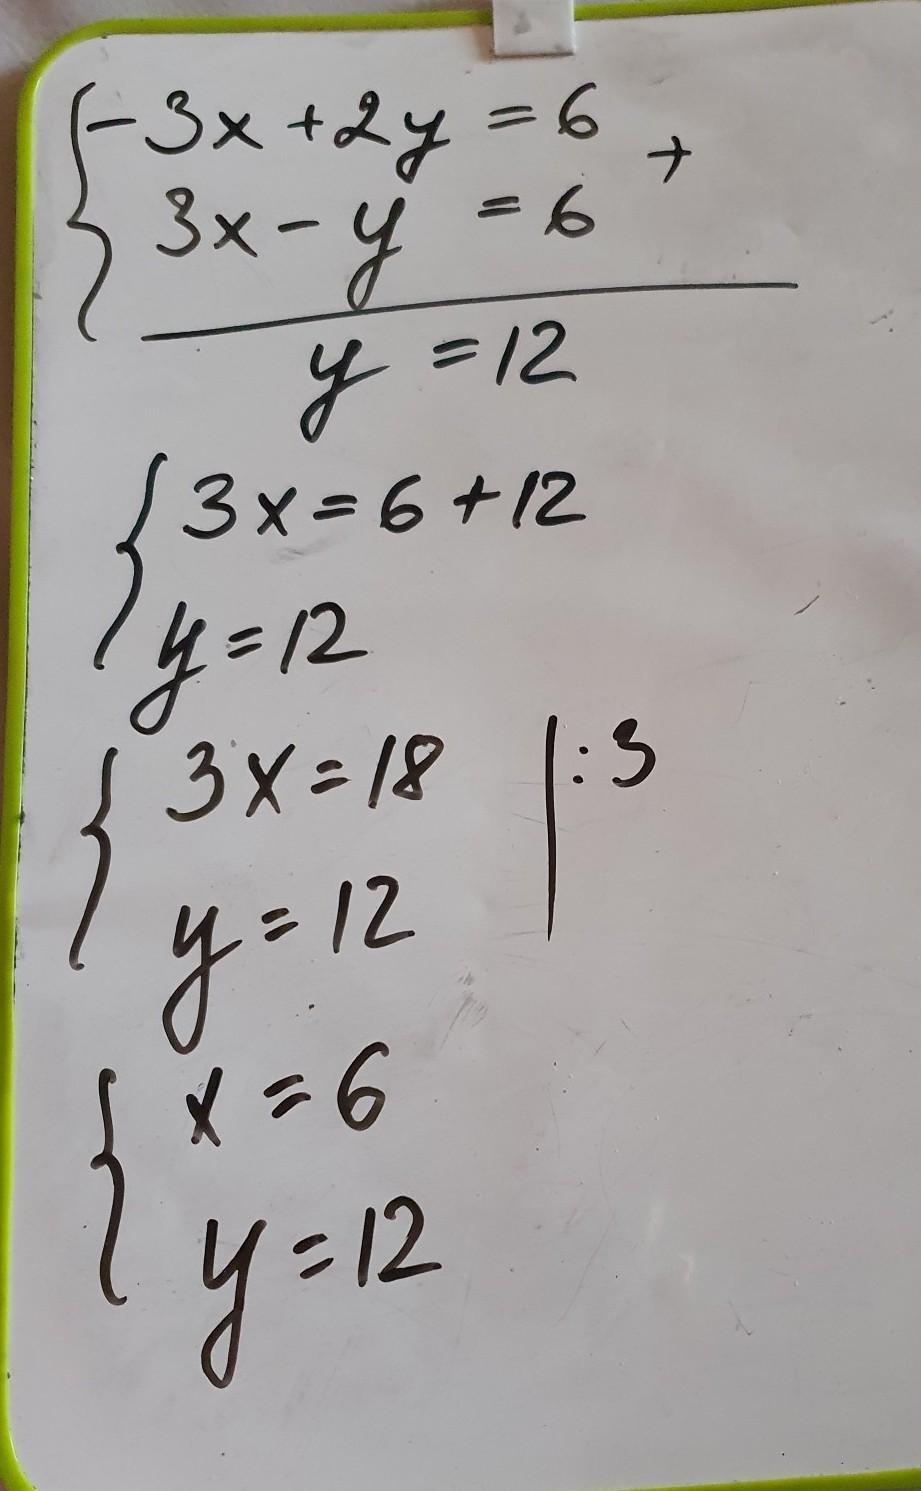 -3x+2y=6
+
3x-y=6
y=12
3x=6+12
y=12
3x=18 |:3
y=12
x=6
y=12